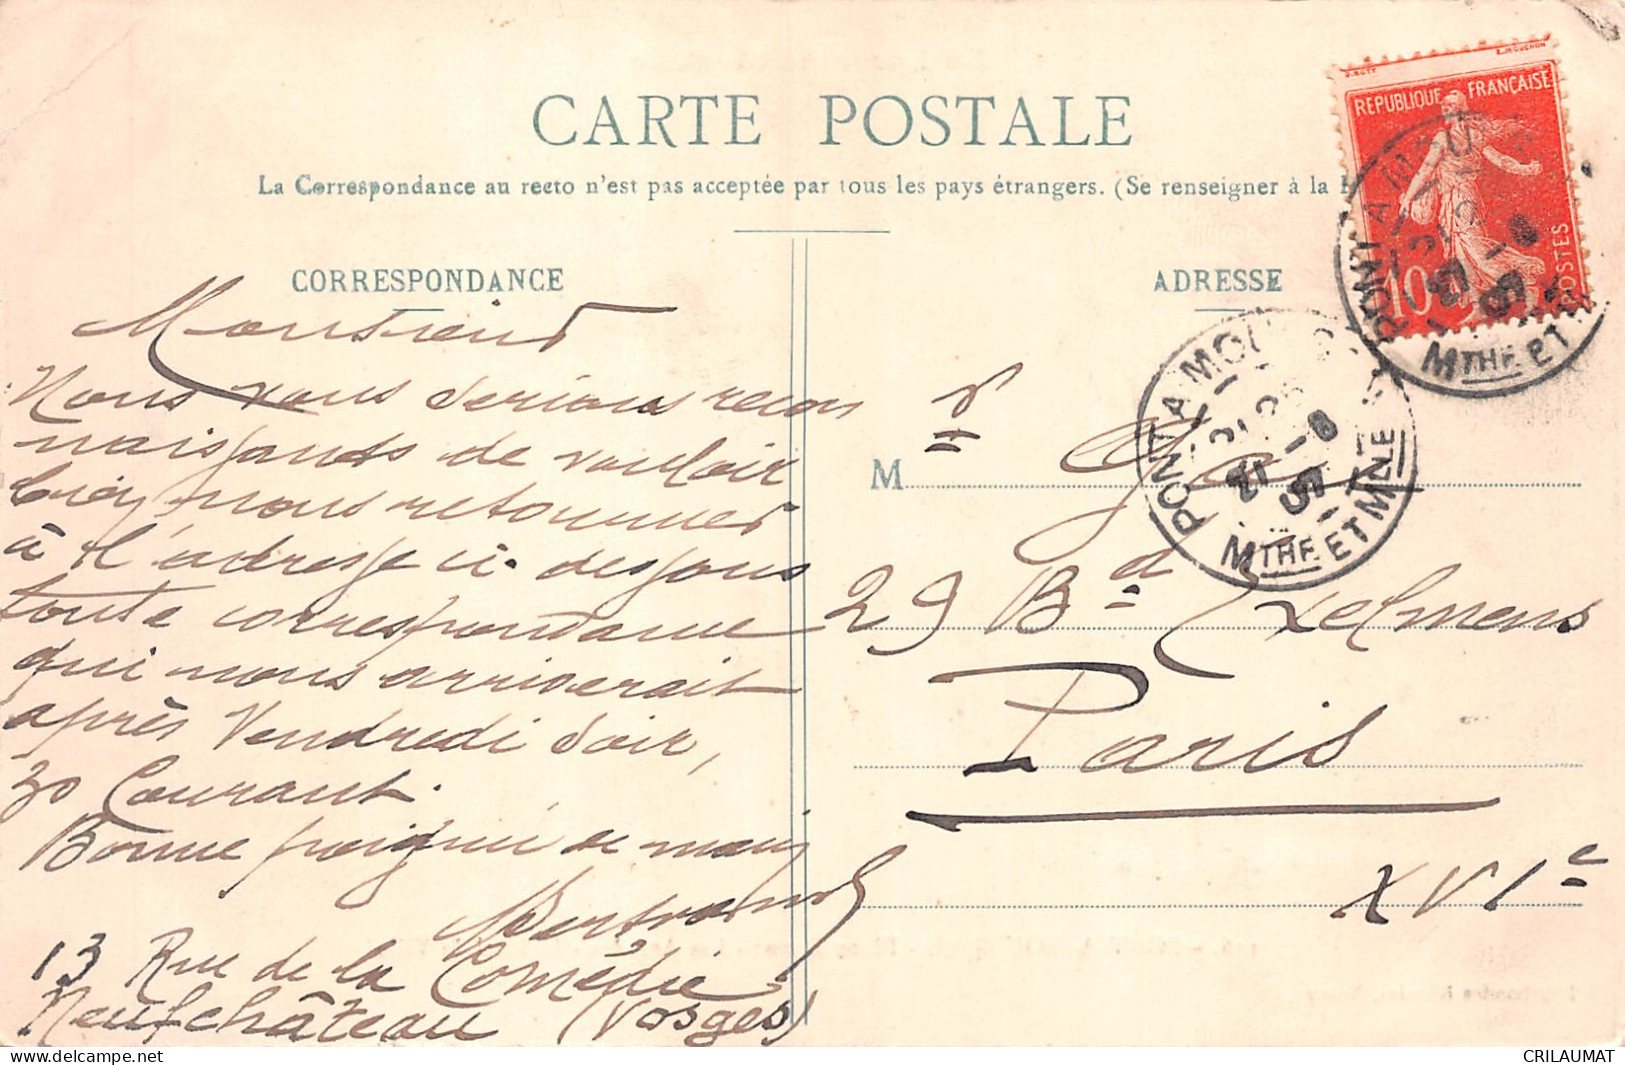 CARTE POSTALE
La Correspondance au recto n'est pas acceptée par tous les pays étrangers. (Se renseigner à la
CORRESPONDANCE
ADRESSE
REPUBLIQUE FRANÇAISE
10
POSTES
PONT A MOUSSON
MTHE ET MNE
Monsieur
Nous vous serions recon
naissants de vouloir
bien nous retourner
à l'adresse ci-dessous
toute correspondance
qui nous arriverait
après Vendredi soir,
30 Courant.
Bonne poignée de main
Bertrand
13 Rue de la Comédie
Neufchâteau (Vosges)
M r
29 Bd Exelmens
Paris
XVIe
CRILAUMAT